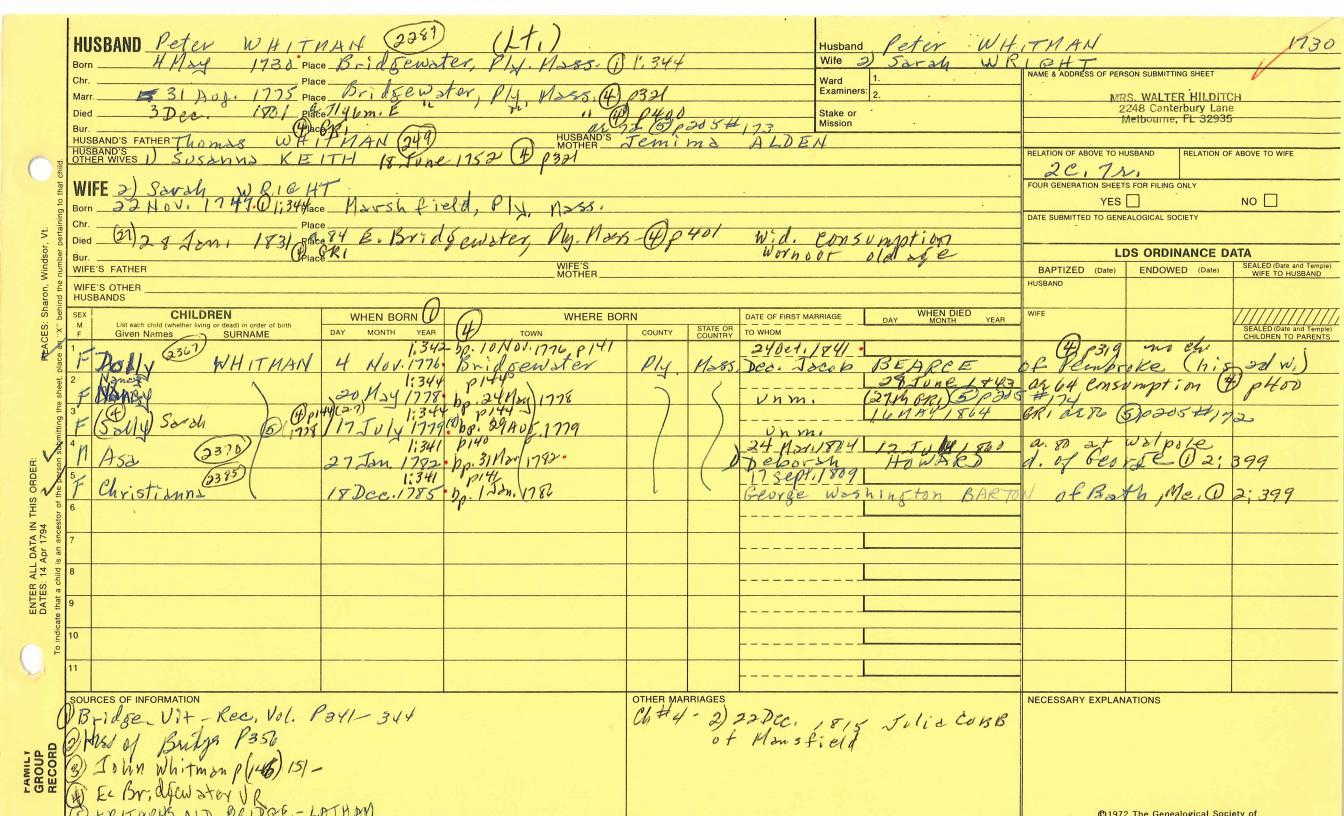 HUSBAND Peter WHITMAN 2287 (Lt.)
Born 4 May 1730 Place Bridgewater, Ply. Mass. ① 1:344
Chr. Place
Marr. 31 Aug. 1775 Place Bridgewater, Ply. Mass. ④ p321
Died 3 Dec. 1801 Place 71y6m. E " " ④ p400
Bur. Place ④ GR1 ae 72 ⑤ p205 #173
HUSBAND'S FATHER Thomas WHITMAN 249 HUSBAND'S MOTHER Jemima ALDEN
HUSBAND'S OTHER WIVES 1) Susanna KEITH 18 June 1752 ④ p321
Husband Peter WHITMAN 1730
Wife 2) Sarah WRIGHT
Ward Examiners: 1.
2.
Stake or Mission
NAME & ADDRESS OF PERSON SUBMITTING SHEET
MRS. WALTER HILDITCH
2248 Canterbury Lane
Melbourne, FL 32935
RELATION OF ABOVE TO HUSBAND RELATION OF ABOVE TO WIFE
2c. 7r.
FOUR GENERATION SHEETS FOR FILING ONLY
YES NO
DATE SUBMITTED TO GENEALOGICAL SOCIETY
WIFE 2) Sarah WRIGHT
Born 22 Nov. 1747. ① 1:344 Place Marshfield, Ply. Mass.
Chr. Place
Died (27) 28 Jan. 1831 Place a. 84 E. Bridgewater, Ply. Mass - ④ p401 Wid. consumption
Bur. Place GR1 Wornout old age
WIFE'S FATHER WIFE'S MOTHER
WIFE'S OTHER HUSBANDS
LDS ORDINANCE DATA
BAPTIZED (Date) ENDOWED (Date) SEALED (Date and Temple) WIFE TO HUSBAND
HUSBAND
WIFE
SEALED (Date and Temple) CHILDREN TO PARENTS
SEX M F
CHILDREN
List each child (whether living or dead) in order of birth
Given Names SURNAME
WHEN BORN ①
DAY MONTH YEAR
WHERE BORN
④ TOWN COUNTY STATE OR COUNTRY
DATE OF FIRST MARRIAGE
TO WHOM
WHEN DIED
DAY MONTH YEAR
1 2367 1:342 bp. 10 Nov. 1776 p141 24 Oct. 1841 ④ p319 no ch
F Dolly WHITMAN 4 Nov. 1776 Bridgewater Ply. Mass. Dea. Jacob BEARCE of Pembroke (his 2d w.)
2 Nancy 1:344 p144 29 June 1843 ae 64 consumption ④ p400
F Nancy 20 May 1778 bp. 24 May 1778 unm. (27th GR1) ⑤ p205 #174
3 ④ ④ p144 (27) 1:344 p144 16 MAY 1864 GR1 ae 86 ⑤ p205 #172
F (Sally) Sarah ⑤ 1778 17 July 1779 bp. 29 Aug. 1779 unm.
4 2370 1:341 p140 24 Mar. 1804 12 July 1860 a. 80 at Walpole
M Asa 27 Jan 1782 bp. 31 Mar 1782 1) Deborah HOWARD d. of George ① 2:399
5 2385 1:341 p141 17 Sept. 1809
F Christianna 18 Dec. 1785 bp. 1 Jan. 1786 George Washington BARTON of Bath, Me. ① 2:399
6
7
8
9
10
11
SOURCES OF INFORMATION
① Bridge. Vit - Rec. Vol. P341-344
② Hist of Bridge P356
③ John Whitman p(146) 151-
④ E. Bridgewater VR
OTHER MARRIAGES
Ch #4 - 2) 22 Dec. 1815 Julia COBB
of Mansfield
NECESSARY EXPLANATIONS
©1972 The Genealogical Society of
ENTER ALL DATA IN THIS ORDER:
DATES: 14 Apr 1794
PLACES: Sharon, Windsor, Vt.
To indicate that a child is an ancestor of the person submitting the sheet, place an "X" behind the number pertaining to that child.
FAMILY GROUP RECORD